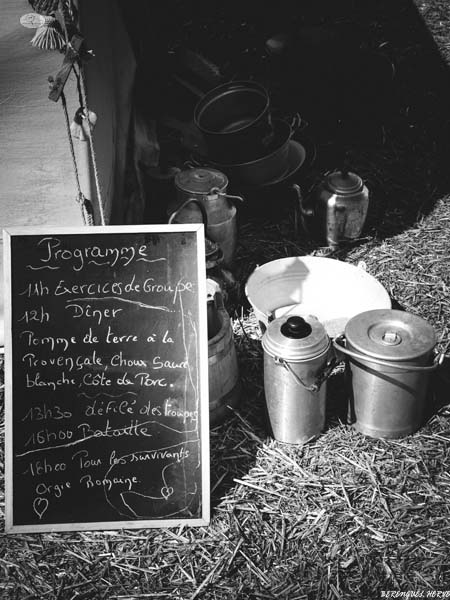 Programme
11h Exercices de Groupe
12h Dîner
Pomme de terre à la
Provençale, Choux Sauce
blanche, Côte de Porc.
13h30 défilé des troupes
16h00 Bataille
18h00 Pour les survivants
Orgie Romaine
BERENGUES.HERVE